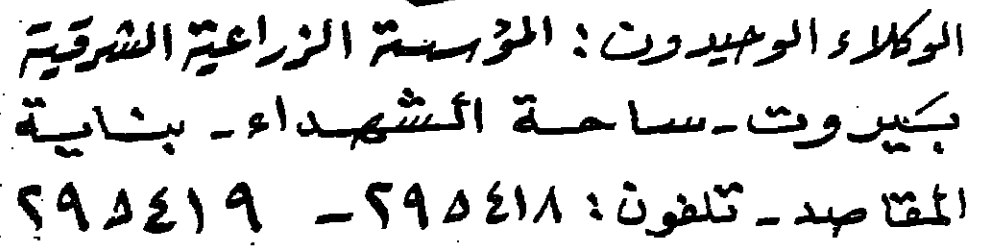 الوكلاء الوحيدون: المؤسسة الزراعية الشرقية
بيروت - ساحة الشهداء - بناية
المقاصد - تلفون: ٢٩٥٤١٨ - ٢٩٥٤١٩